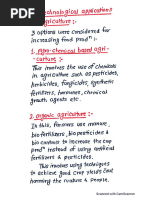 technological applications
agriculture :-
3 options were considered for
increasing food prodn :-
1. Agro-chemical based agri-
-culture :-
This involves the use of chemicals
in agriculture such as pesticides,
herbicides, fungicides, synthetic
fertilizers, hormones, chemical
growth agents etc.
2. organic agriculture :-
In this, farmers use manure,
bio-fertilizers, bio-pesticides &
bio-control to increase the crop
prodn Instead of using artificial
fertilizers & pesticides. This is
to achieve good crop yields without
harming the nature & people.
Scanned with CamScanner